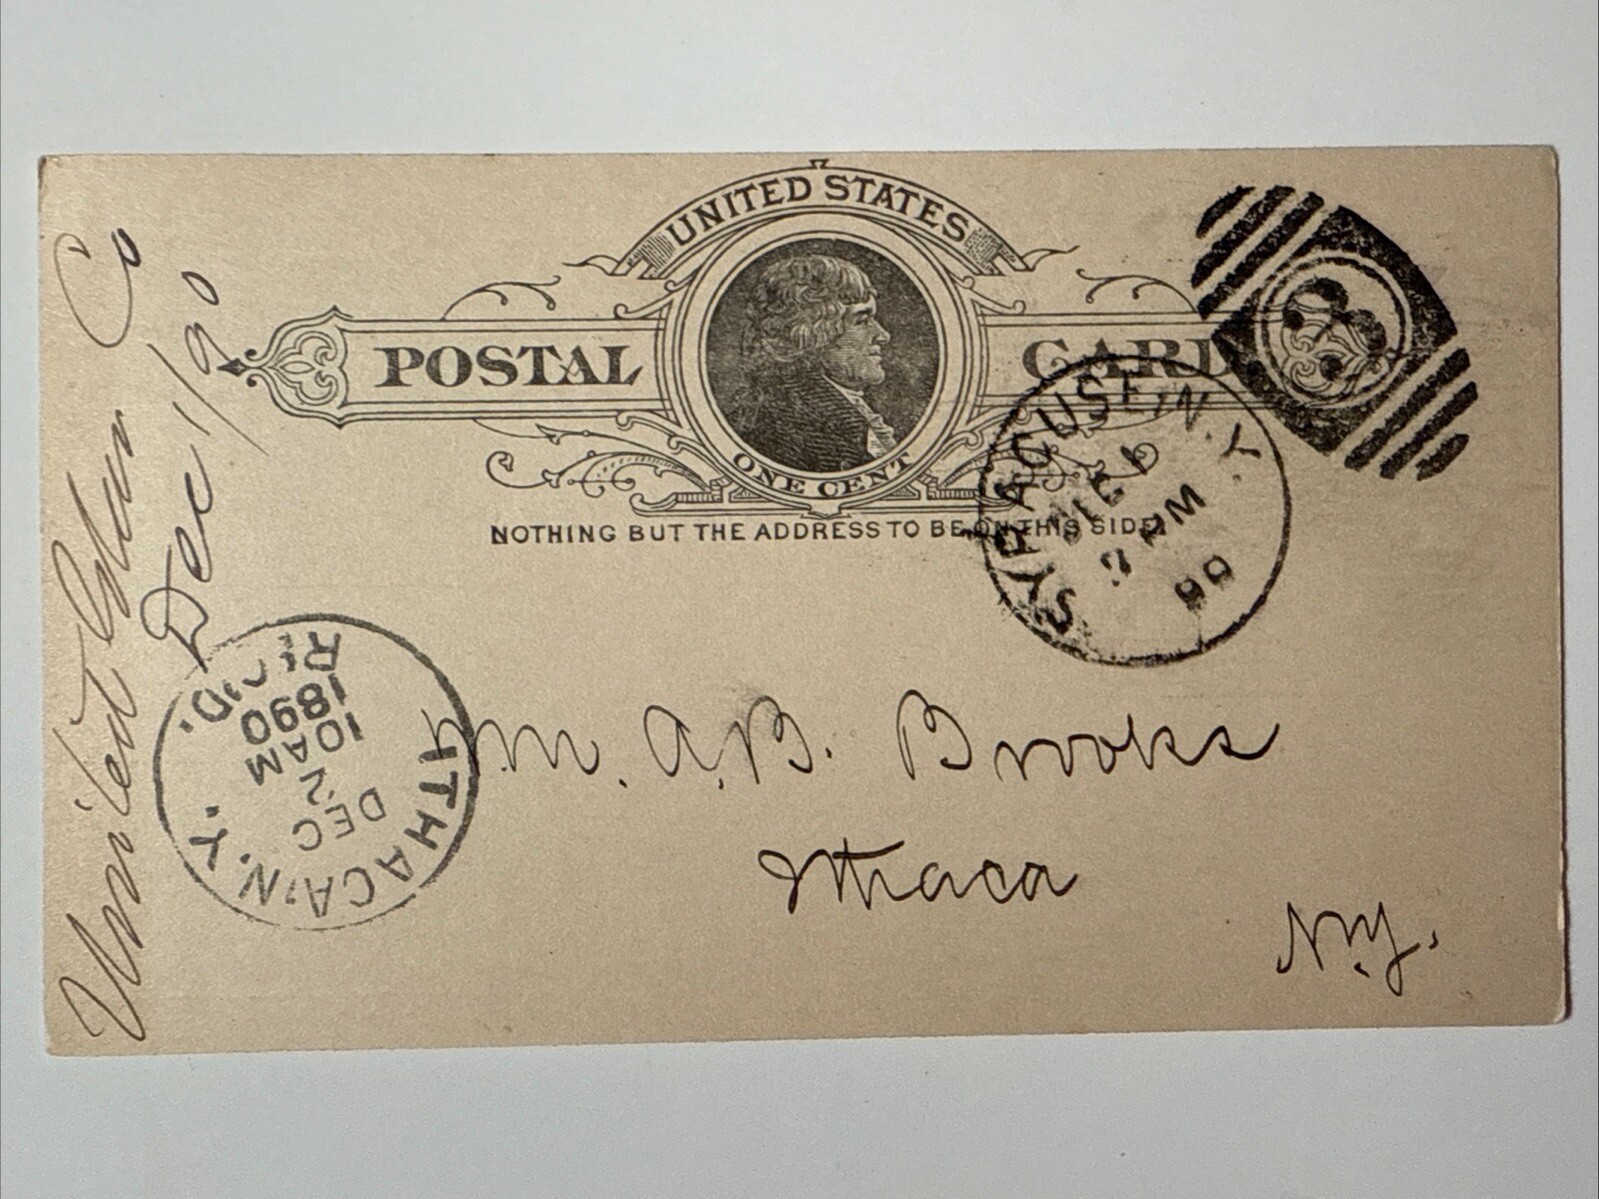 UNITED STATES
POSTAL CARD
ONE CENT
NOTHING BUT THE ADDRESS TO BE ON THIS SIDE.
SYRACUSE, N.Y.
PM
90
United Glass Co
Dec 1/90
ITHACA, N.Y.
DEC
2
10AM
1890
REC'D.
Mr. A.B. Brooks
Ithaca
N.Y.